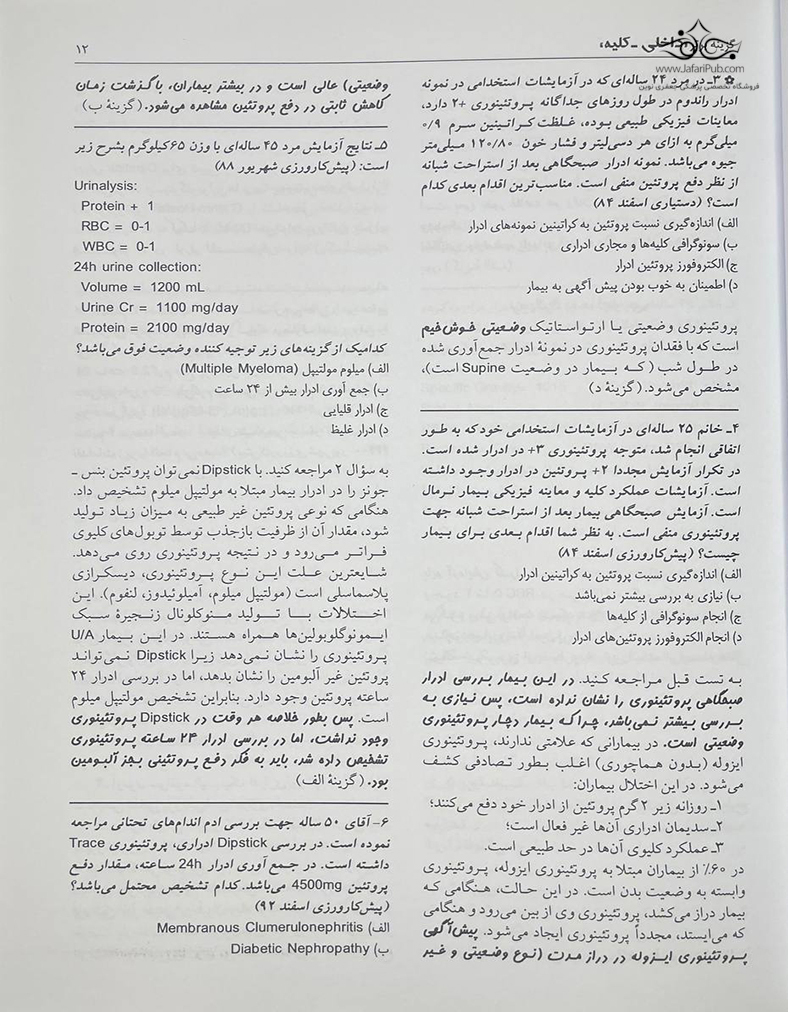 گزینه برتر داخلی - کلیه،
۱۲
www.JafariPub.com
فروشگاه تخصصی پزشکی جعفری نوین
۳- در مرد ۲۴ ساله‌ای که در آزمایشات استخدامی در نمونه
ادرار راندوم در طول روزهای جداگانه پروتئینوری +۲ دارد،
معاینات فیزیکی طبیعی بوده، غلظت کراتینین سرم ۰/۹
میلی‌گرم به ازای هر دسی‌لیتر و فشار خون ۱۲۰/۸۰ میلی‌متر
جیوه می‌باشد. نمونه ادرار صبحگاهی بعد از استراحت شبانه
از نظر دفع پروتئین منفی است. مناسب‌ترین اقدام بعدی کدام
است؟ (دستیاری اسفند ۸۴)
الف) اندازه‌گیری نسبت پروتئین به کراتینین نمونه‌های ادرار
ب) سونوگرافی کلیه‌ها و مجاری ادراری
ج) الکتروفورز پروتئین ادرار
د) اطمینان به خوب بودن پیش آگهی به بیمار
پروتئینوری وضعیتی یا ارتواستاتیک وضعیتی خوش‌خیم
است که با فقدان پروتئینوری در نمونهٔ ادرار جمع‌آوری شده
در طول شب (که بیمار در وضعیت Supine است)،
مشخص می‌شود. (گزینهٔ د)
۴- خانم ۲۵ ساله‌ای در آزمایشات استخدامی خود که به طور
اتفاقی انجام شد، متوجه پروتئینوری +۳ در ادرار شده است.
در تکرار آزمایش مجددا +۲ پروتئین در ادرار وجود داشته
است. آزمایشات عملکرد کلیه و معاینه فیزیکی بیمار نرمال
است. آزمایش صبحگاهی بیمار بعد از استراحت شبانه جهت
پروتئینوری منفی است. به نظر شما اقدام بعدی برای بیمار
چیست؟ (پیش‌کارورزی اسفند ۸۴)
الف) اندازه‌گیری نسبت پروتئین به کراتینین ادرار
ب) نیازی به بررسی بیشتر نمی‌باشد
ج) انجام سونوگرافی از کلیه‌ها
د) انجام الکتروفورز پروتئین‌های ادرار
به تست قبل مراجعه کنید. در این بیمار بررسی ادرار
صبحگاهی پروتئینوری را نشان نداده است، پس نیازی به
بررسی بیشتر نمی‌باشد، چرا که بیمار دچار پروتئینوری
وضعیتی است. در بیمارانی که علامتی ندارند، پروتئینوری
ایزوله (بدون هماچوری) اغلب بطور تصادفی کشف
می‌شود. در این اختلال بیماران:
۱- روزانه زیر ۲ گرم پروتئین از ادرار خود دفع می‌کنند؛
۲- سدیمان ادراری آن‌ها غیر فعال است؛
۳- عملکرد کلیوی آن‌ها در حد طبیعی است.
در ۶۰٪ از بیماران مبتلا به پروتئینوری ایزوله، پروتئینوری
وابسته به وضعیت بدن است. در این حالت، هنگامی که
بیمار دراز می‌کشد، پروتئینوری وی از بین می‌رود و هنگامی
که می‌ایستد، مجدداً پروتئینوری ایجاد می‌شود. پیش‌آگهی
پروتئینوری ایزوله در دراز مدت (نوع وضعیتی و غیر
وضعیتی) عالی است و در بیشتر بیماران، با گذشت زمان
کاهش ثابتی در دفع پروتئین مشاهده می‌شود. (گزینهٔ ب)
۵- نتایج آزمایش مرد ۴۵ ساله‌ای با وزن ۶۵ کیلوگرم بشرح زیر
است: (پیش‌کارورزی شهریور ۸۸)
Urinalysis:
Protein + 1
RBC = 0-1
WBC = 0-1
24h urine collection:
Volume = 1200 mL
Urine Cr = 1100 mg/day
Protein = 2100 mg/day
کدامیک از گزینه‌های زیر توجیه کننده وضعیت فوق می‌باشد؟
الف) میلوم مولتیپل (Multiple Myeloma)
ب) جمع آوری ادرار بیش از ۲۴ ساعت
ج) ادرار قلیایی
د) ادرار غلیظ
به سؤال ۲ مراجعه کنید. با Dipstick نمی‌توان پروتئین بنس -
جونز را در ادرار بیمار مبتلا به مولتیپل میلوم تشخیص داد.
هنگامی که نوعی پروتئین غیر طبیعی به میزان زیاد تولید
شود، مقدار آن از ظرفیت بازجذب توسط توبول‌های کلیوی
فراتر می‌رود و در نتیجه پروتئینوری روی می‌دهد.
شایعترین علت این نوع پروتئینوری، دیسکرازی
پلاسماسلی است (مولتیپل میلوم، آمیلوئیدوز، لنفوم). این
اختلالات با تولید منوکلونال زنجیرهٔ سبک
ایمونوگلوبولین‌ها همراه هستند. در این بیمار U/A
پروتئینوری را نشان نمی‌دهد زیرا Dipstick نمی‌تواند
پروتئین غیر آلبومین را نشان بدهد، اما در بررسی ادرار ۲۴
ساعته پروتئین وجود دارد. بنابراین تشخیص مولتیپل میلوم
است. پس بطور خلاصه هر وقت در Dipstick پروتئینوری
وجود نداشت، اما در بررسی ادرار ۲۴ ساعته پروتئینوری
تشخیص داده شد، باید به فکر دفع پروتئینی بجز آلبومین
بود. (گزینهٔ الف)
۶- آقای ۵۰ ساله جهت بررسی ادم اندام‌های تحتانی مراجعه
نموده است. در بررسی Dipstick ادراری، پروتئینوری Trace
داشته است. در جمع آوری ادرار 24h ساعته، مقدار دفع
پروتئین 4500mg می‌باشد. کدام تشخیص محتمل می‌باشد؟
(پیش‌کارورزی اسفند ۹۲)
الف) Membranous Clumerulonephritis
ب) Diabetic Nephropathy